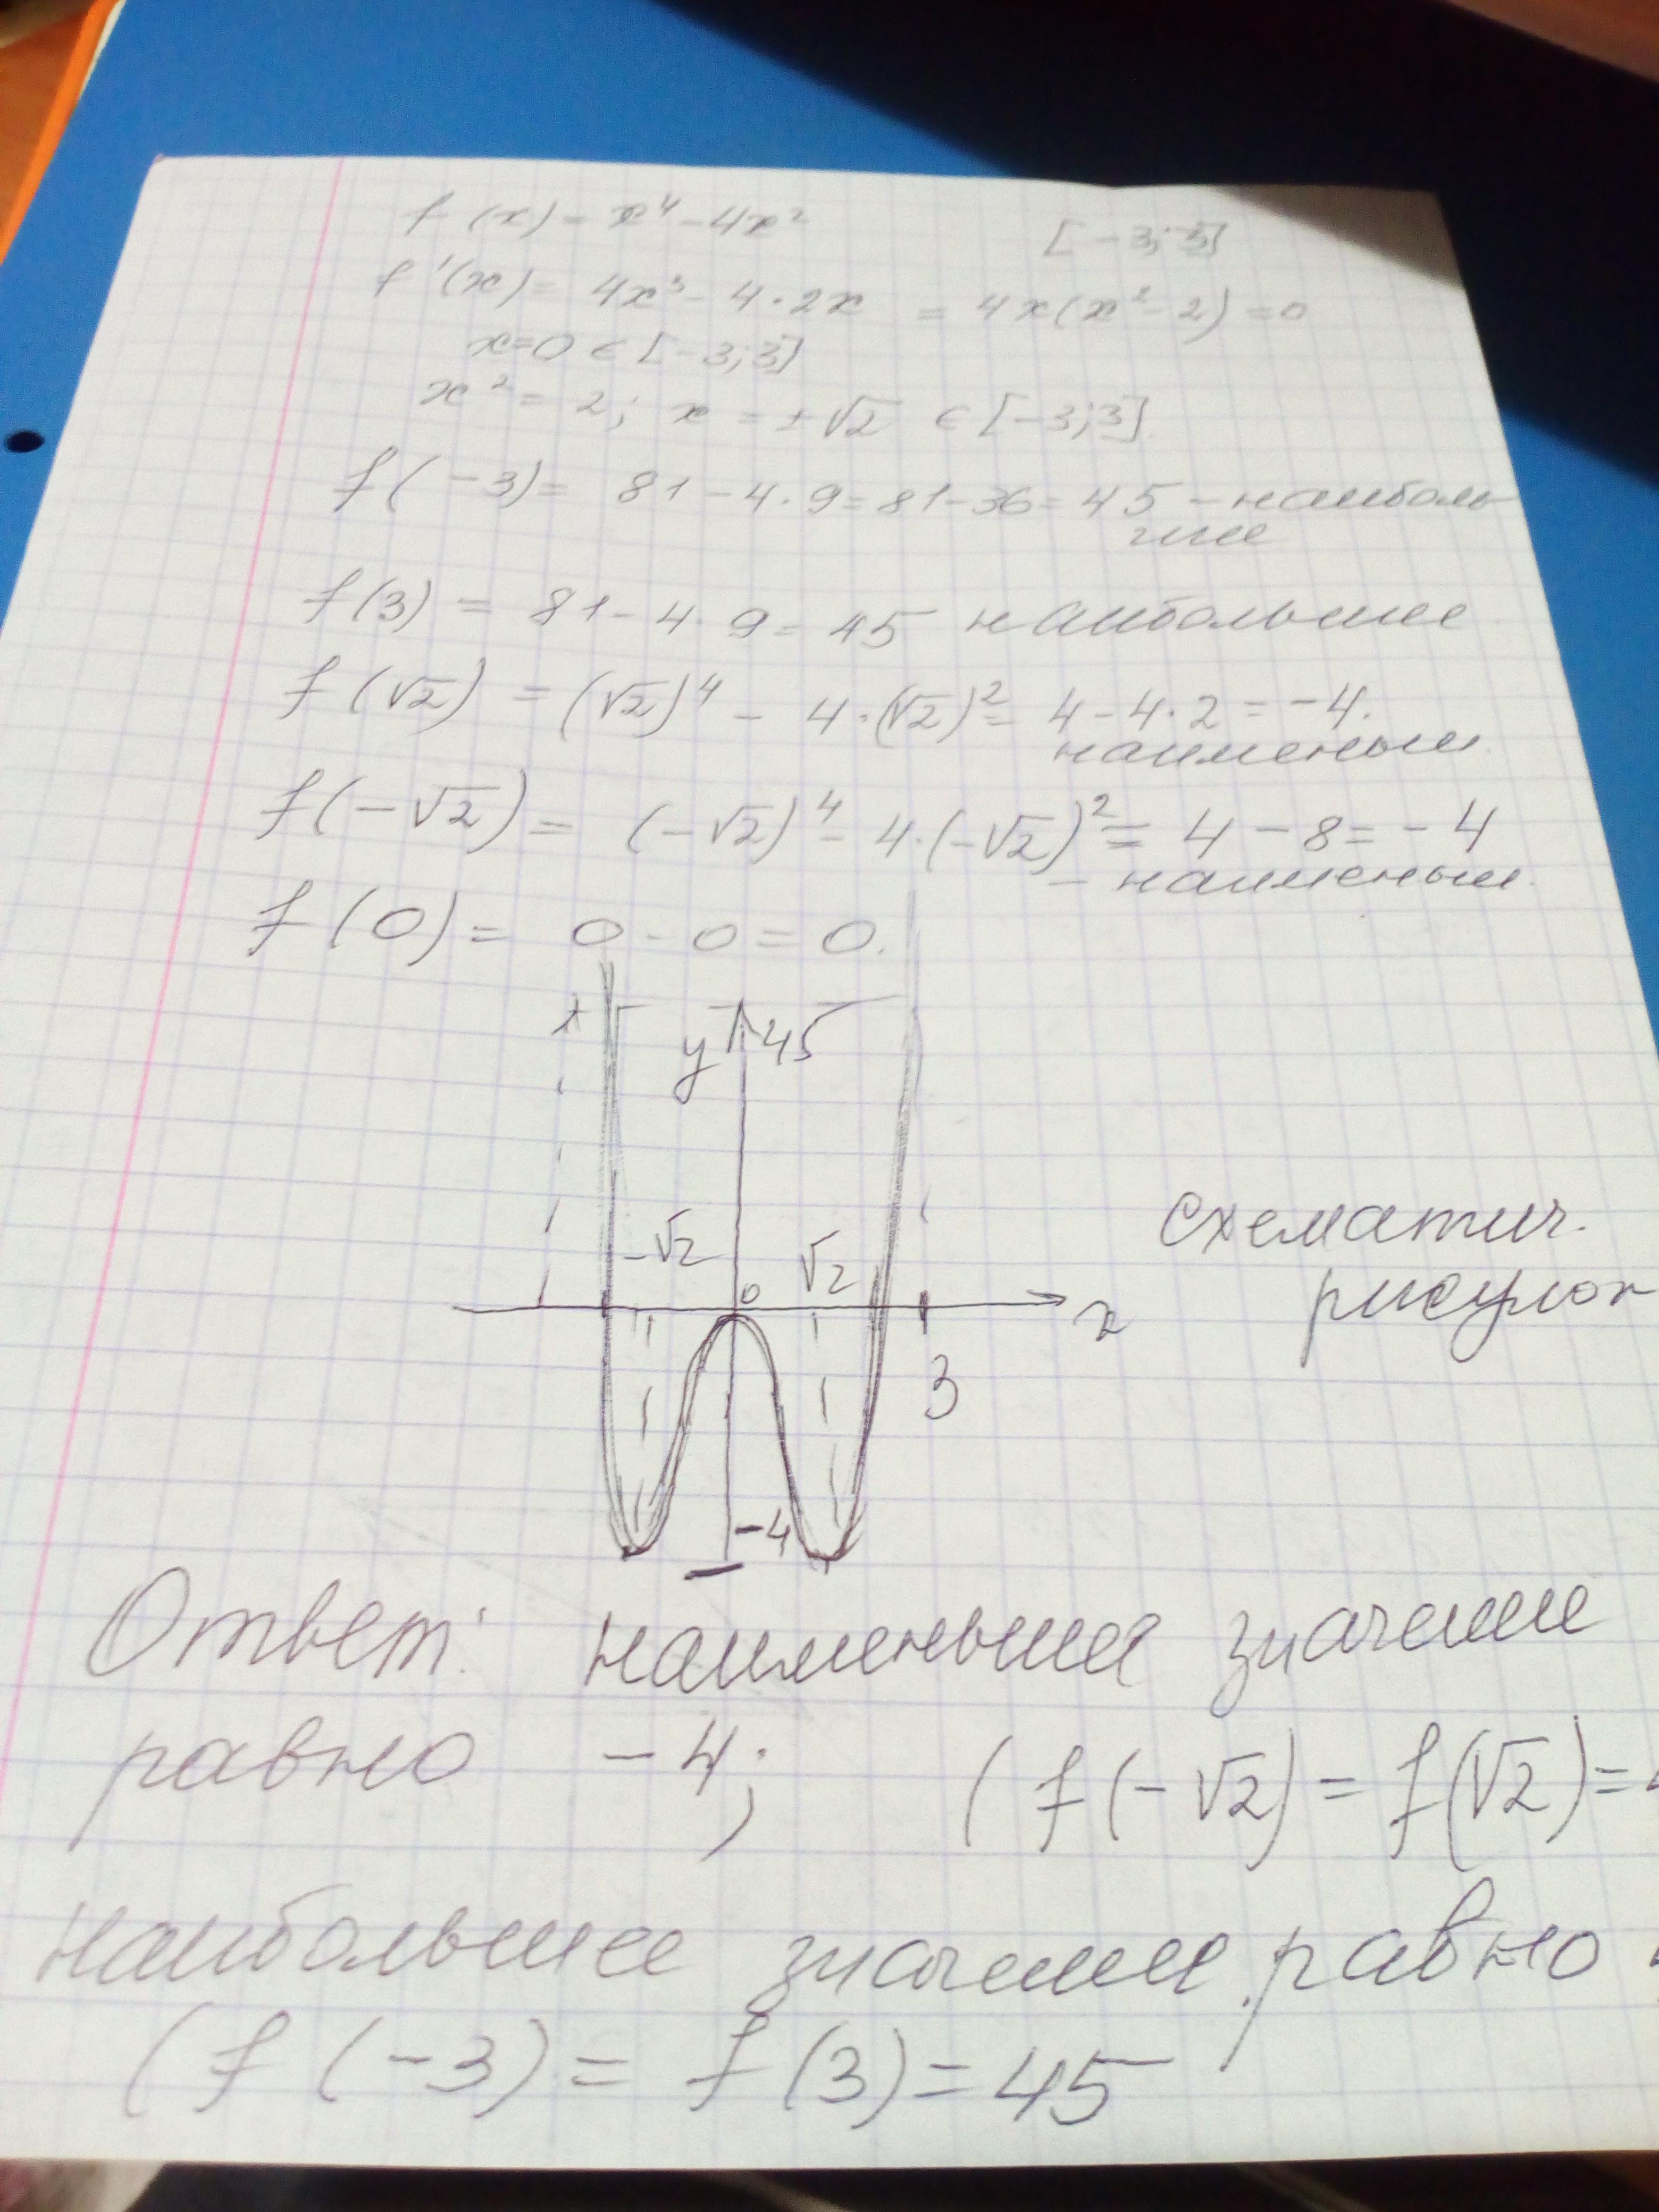 f(x) = x⁴ - 4x² [-3; 3]
f'(x) = 4x³ - 4·2x = 4x(x² - 2) = 0
x=0 ∈ [-3; 3]
x² = 2; x = ±√2 ∈ [-3; 3]
f(-3) = 81 - 4·9 = 81 - 36 = 45 - наиболь
шее
f(3) = 81 - 4·9 = 45 наибольшее
f(√2) = (√2)⁴ - 4·(√2)² = 4 - 4·2 = -4.
наименьш.
f(-√2) = (-√2)⁴ - 4·(-√2)² = 4 - 8 = -4
- наименьш.
f(0) = 0 - 0 = 0.
y 45
-√2 0 √2
x
3
-4
схематич.
рисунок
Ответ: наименьшее значение
равно -4; (f(-√2) = f(√2) =
наибольшее значение равно
(f(-3) = f(3) = 45